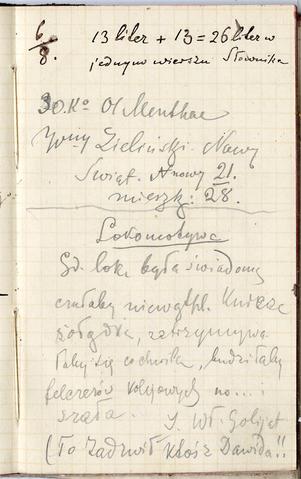 6/8. 13 liter + 13 = 26 liter w
jednym wierszu Słownika
30. K° Ol Menthae
Zieliński. Nowy
Świat. Nowy 21.
mieszk: 28.
Lokomotywa
Gd. lok. była świadomą
czułaby niewątpl. kurcze
żołądka, zatrzymywa
łaby się co chwila, budziłaby
felczerów kolejowych no....
szala.
J. Wł.
(To zadrwił ktoś z Dawida!!